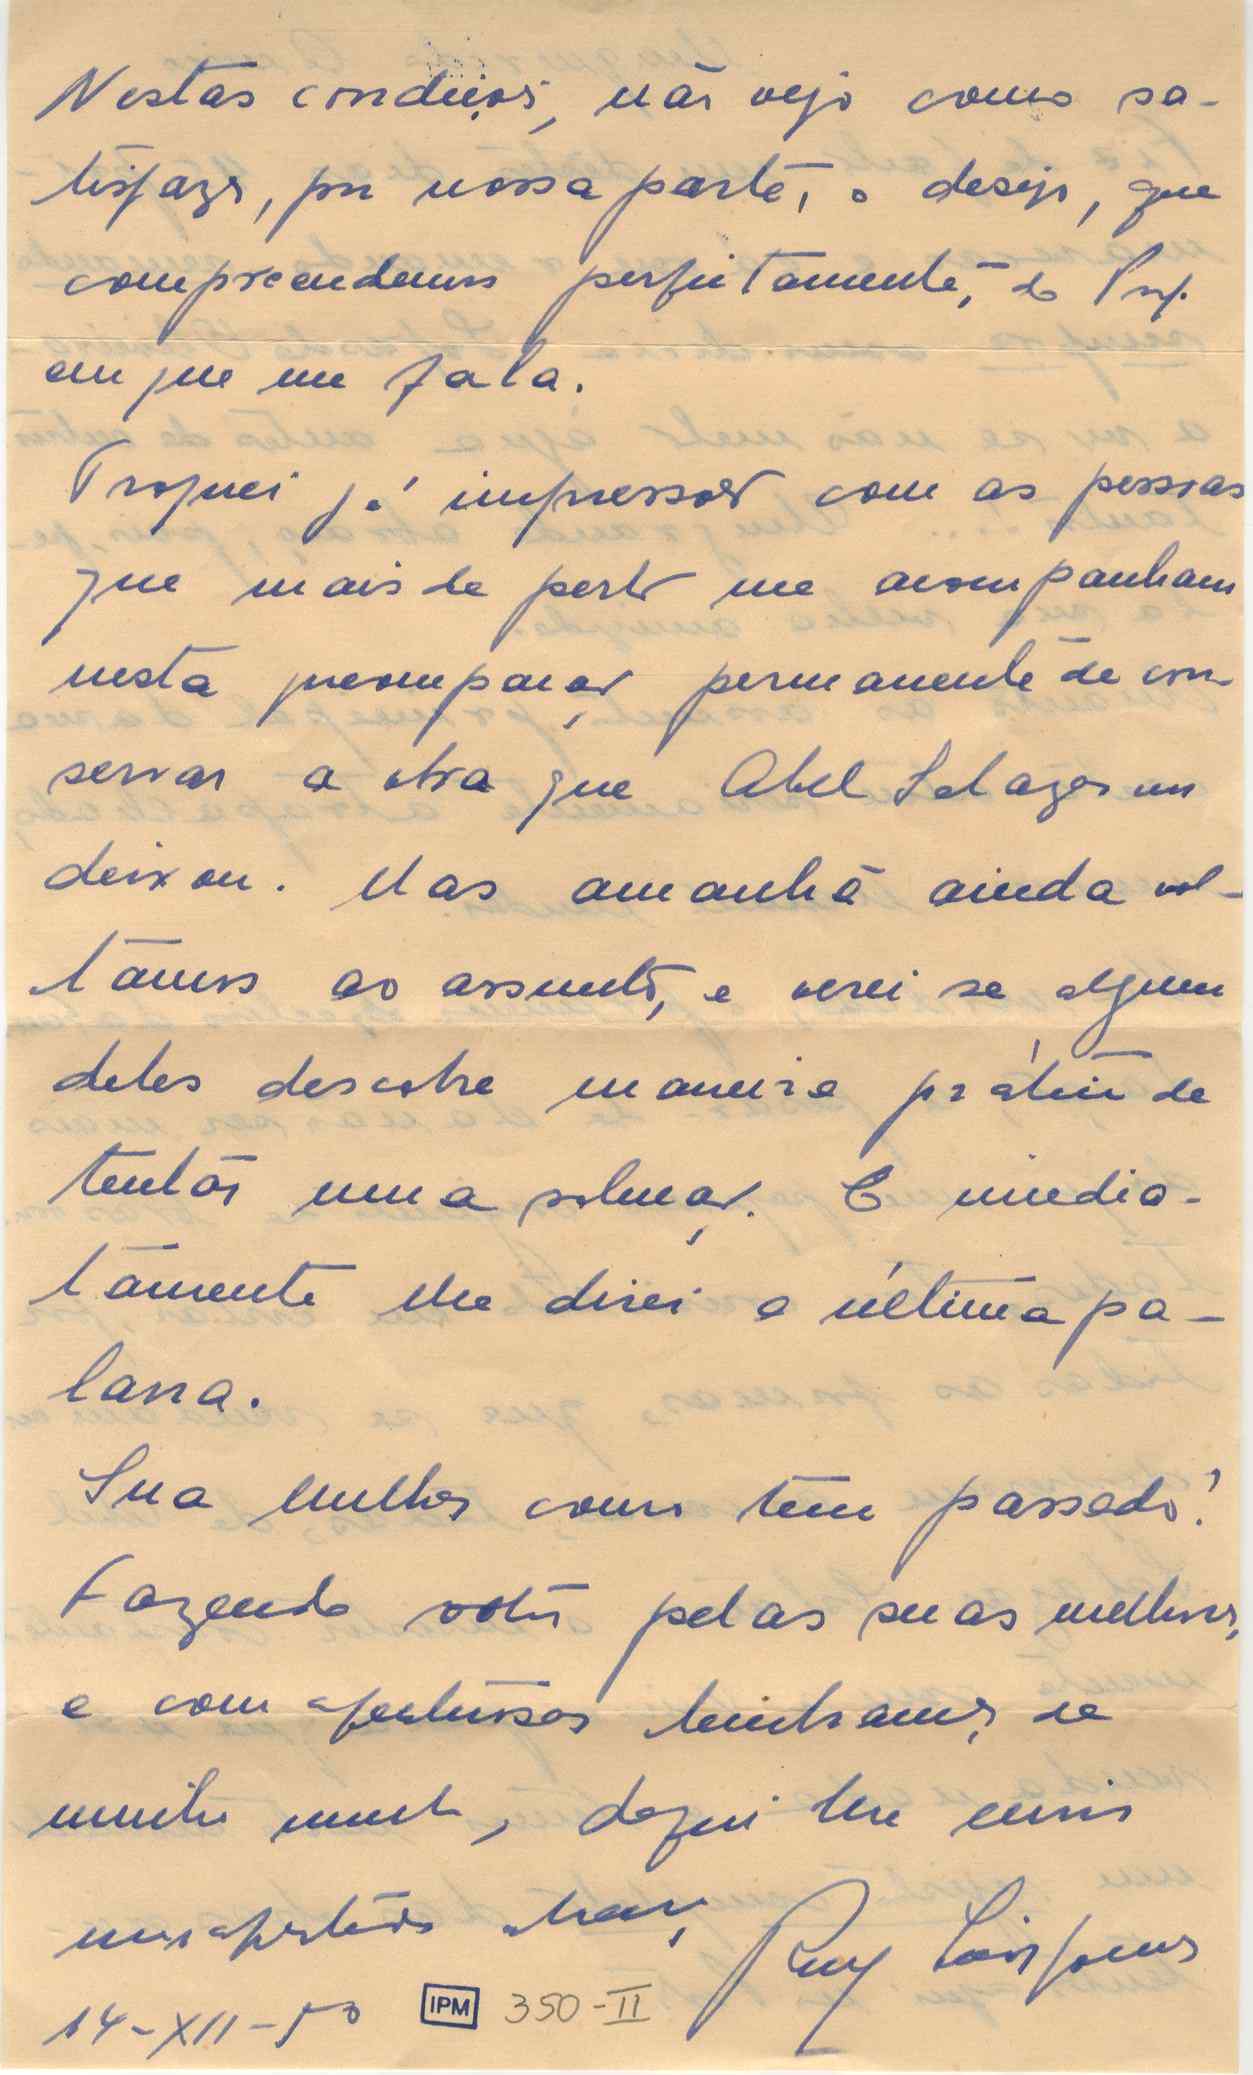 Nestas condições, não vejo como sa-
tisfazer, por nossa parte, o desejo, que
compreendemos perfeitamente, do Prof.
em que me fala.
Troquei já impressões com as pessoas
que mais de perto me acompanham
nesta preocupação permanente de con-
servar a obra que Abel Salazar nos
deixou. Mas amanhã ainda vol-
tamos ao assunto, e verei se algum
deles descobre maneira prática de
tentar uma solução. E imedia-
tamente lhe direi a última pa-
lavra.
Sua mulher como tem passado?
Fazendo votos pelas suas melhoras,
e com afectuosas lembranças de
muito, daqui lhe envio
um apertado abraço,
Ruy Luís Gomes
14-XII-50 IPM 350-II